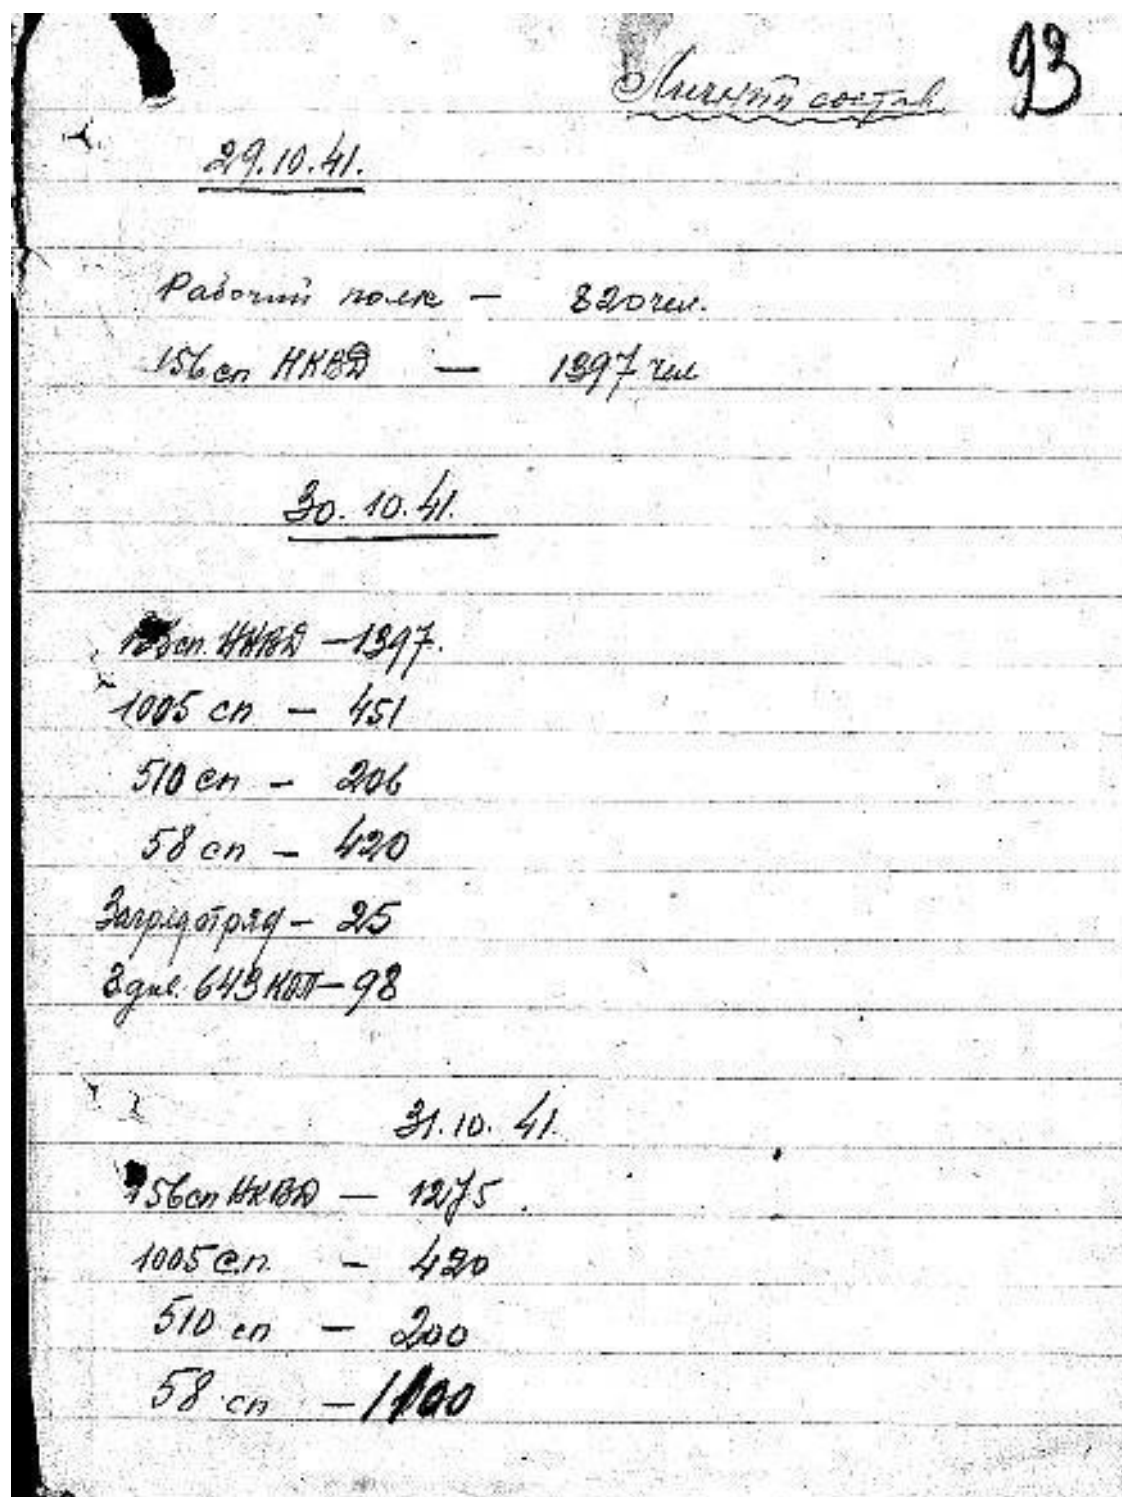 93
Личный состав
29.10.41.
Рабочий полк — 820 чел.
156 сп НКВД — 1397 чел
30.10.41.
156 сп. НКВД — 1397.
1005 сп — 451
510 сп — 206
58 сп — 420
Заградотряд — 25
3 див. 643 КАП — 98
31.10.41.
156 сп НКВД — 1275.
1005 с.п. — 420
510 сп — 200
58 сп —